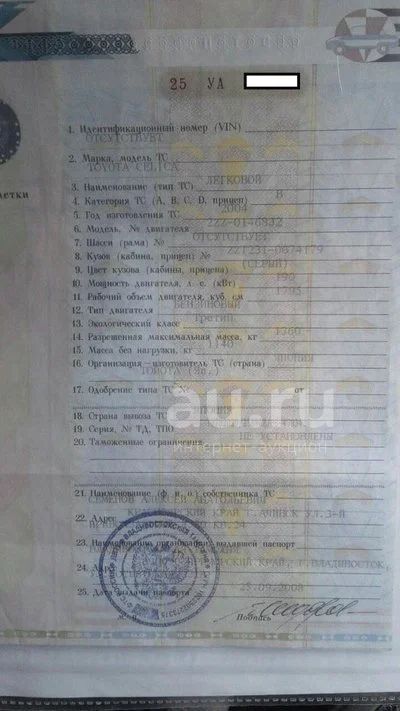 25 УА
1. Идентификационный номер (VIN)
ОТСУТСТВУЕТ
2. Марка, модель ТС
TOYOTA CELICA
3. Наименование (тип ТС) ЛЕГКОВОЙ
4. Категория ТС (А, В, С, D, прицеп) В
5. Год изготовления ТС 2004
6. Модель, № двигателя 2ZZ-0146832
7. Шасси (рама) № ОТСУТСТВУЕТ
8. Кузов (кабина, прицеп) № ZZT231-0074179
9. Цвет кузова (кабины, прицепа) (СЕРЫЙ)
10. Мощность двигателя, л. с. (кВт) 190
11. Рабочий объем двигателя, куб. см 1795
12. Тип двигателя БЕНЗИНОВЫЙ
13. Экологический класс третий
14. Разрешенная максимальная масса, кг 1380
15. Масса без нагрузки, кг 1140
16. Организация-изготовитель ТС (страна) ЯПОНИЯ
ТОЙОТА
17. Одобрение типа ТС № от
18. Страна вывоза ТС ЯПОНИЯ
19. Серия, № ТД, ТПО
20. Таможенные ограничения НЕ УСТАНОВЛЕНЫ
au.ru
интернет-аукцион
21. Наименование (ф. и. о.) собственника ТС
СЕМЕНОВ АЛЕКСЕЙ АНАТОЛЬЕВИЧ
22. Адрес КРАЙ Г. АЧИНСК УЛ. 3-Я
23. Наименование организации, выдавшей паспорт
24. Адрес КРАЙ, Г. ВЛАДИВОСТОК,
25. Дата выдачи паспорта 25.09.2008
Подпись